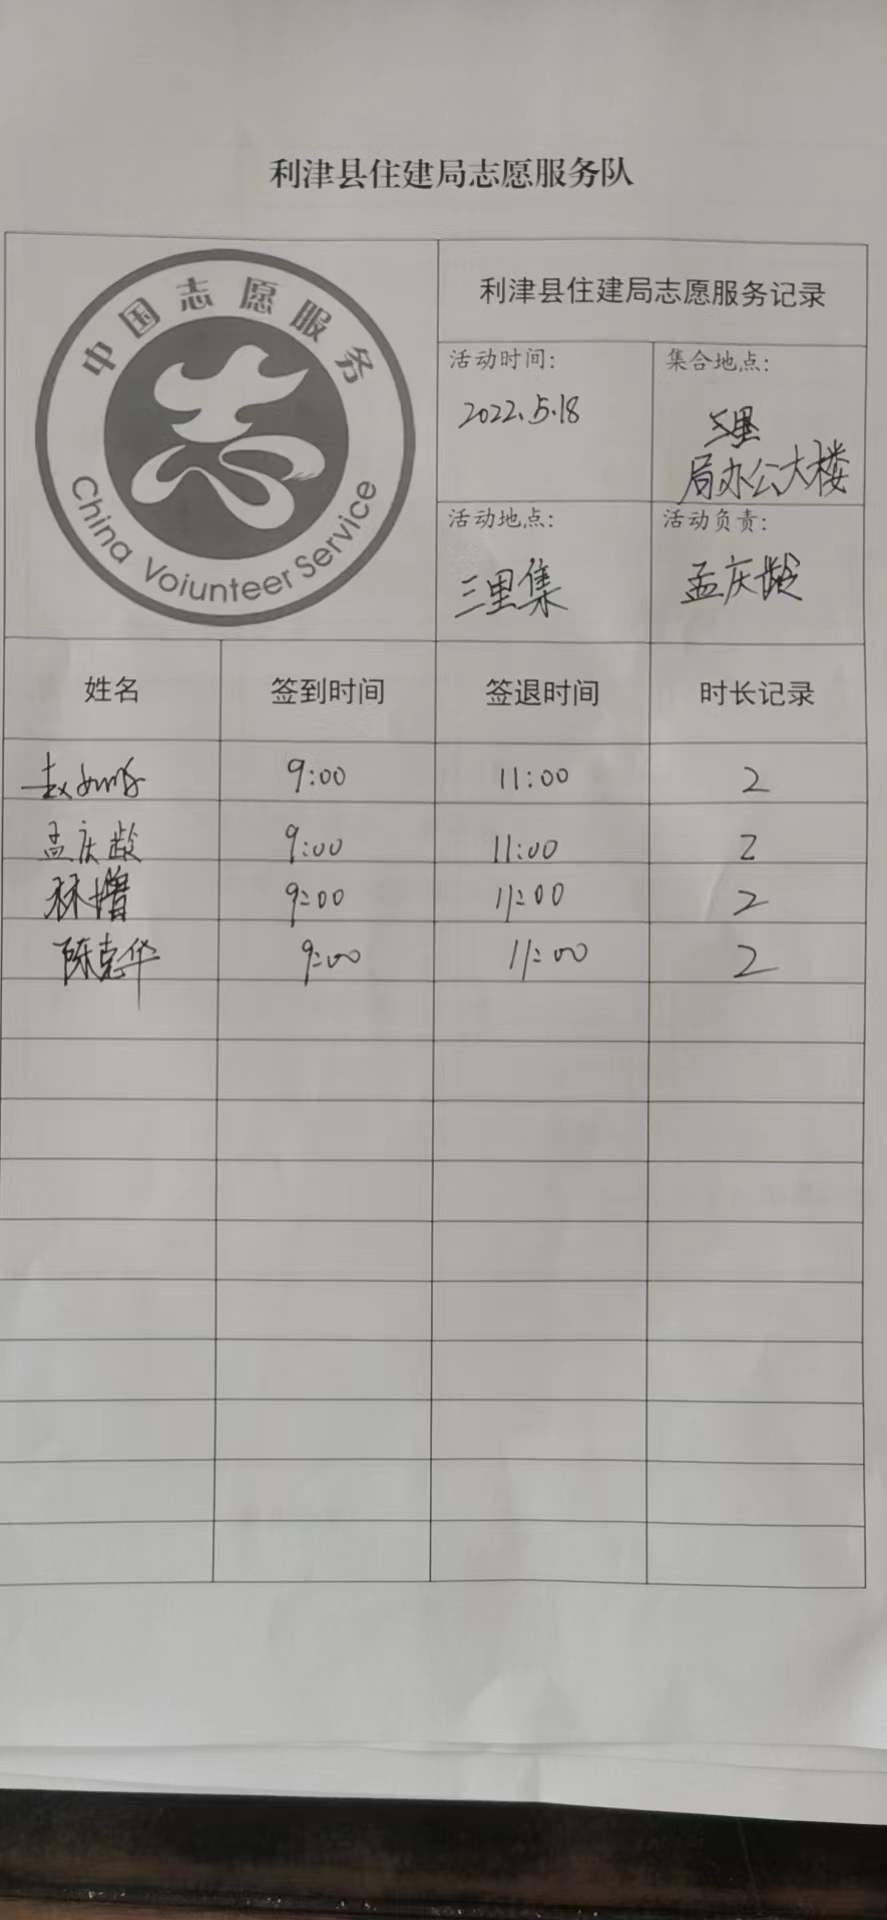 利津县住建局志愿服务队
中国志愿服务
志
China Voiunteer Service
利津县住建局志愿服务记录
活动时间:
2022.5.18
集合地点:
局办公大楼
活动地点:
三里集
活动负责:
孟庆龄
姓名 签到时间 签退时间 时长记录
9:00 11:00 2
孟庆龄 9:00 11:00 2
林增 9:00 11:00 2
陈克华 9:00 11:00 2